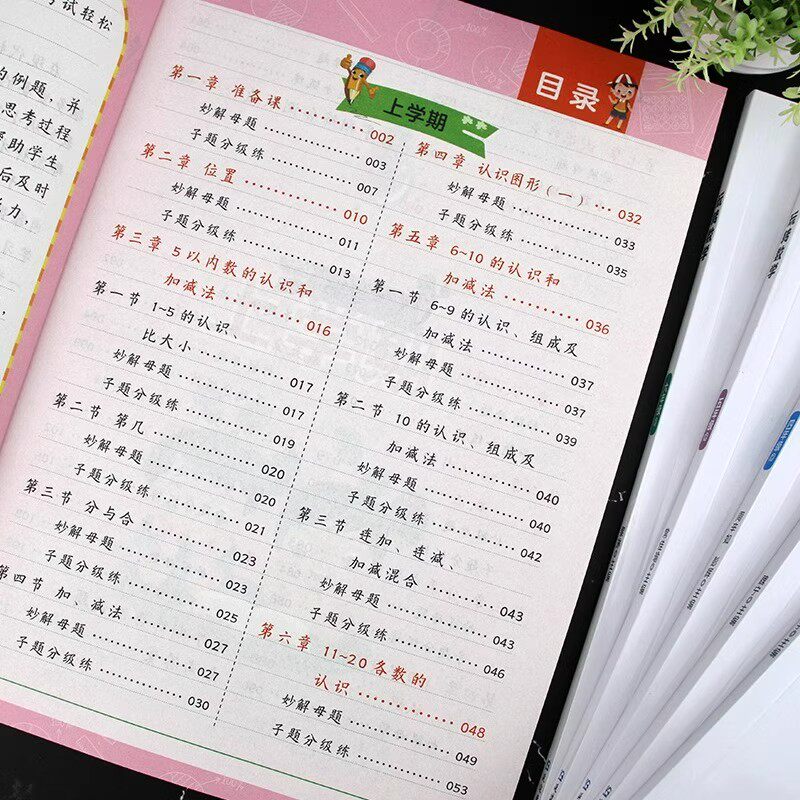 考试轻松
的例题，并
思考过程
帮助学生
后及时
目录
上学期
第一章 准备课 ………… 002
妙解母题 ………… 003
子题分级练 ………… 007
第二章 位置 ………… 010
妙解母题 ………… 011
子题分级练 ………… 013
第三章 5以内数的认识和
加减法 ………… 016
第一节 1~5的认识、
比大小 ………… 017
妙解母题 ………… 017
子题分级练 ………… 019
第二节 第几 ………… 020
妙解母题 ………… 020
子题分级练 ………… 021
第三节 分与合 ………… 023
妙解母题 ………… 023
子题分级练 ………… 025
第四节 加、减法 ………… 027
妙解母题 ………… 027
子题分级练 ………… 030
第四章 认识图形（一）… 032
妙解母题 ………… 033
子题分级练 ………… 035
第五章 6~10的认识和
加减法 ………… 036
第一节 6~9的认识、组成及
加减法 ………… 037
妙解母题 ………… 037
子题分级练 ………… 039
第二节 10的认识、组成及
加减法 ………… 040
妙解母题 ………… 040
子题分级练 ………… 042
第三节 连加、连减、
加减混合 ………… 043
妙解母题 ………… 043
子题分级练 ………… 046
第六章 11~20各数的
认识 ………… 048
妙解母题 ………… 049
子题分级练 ………… 053